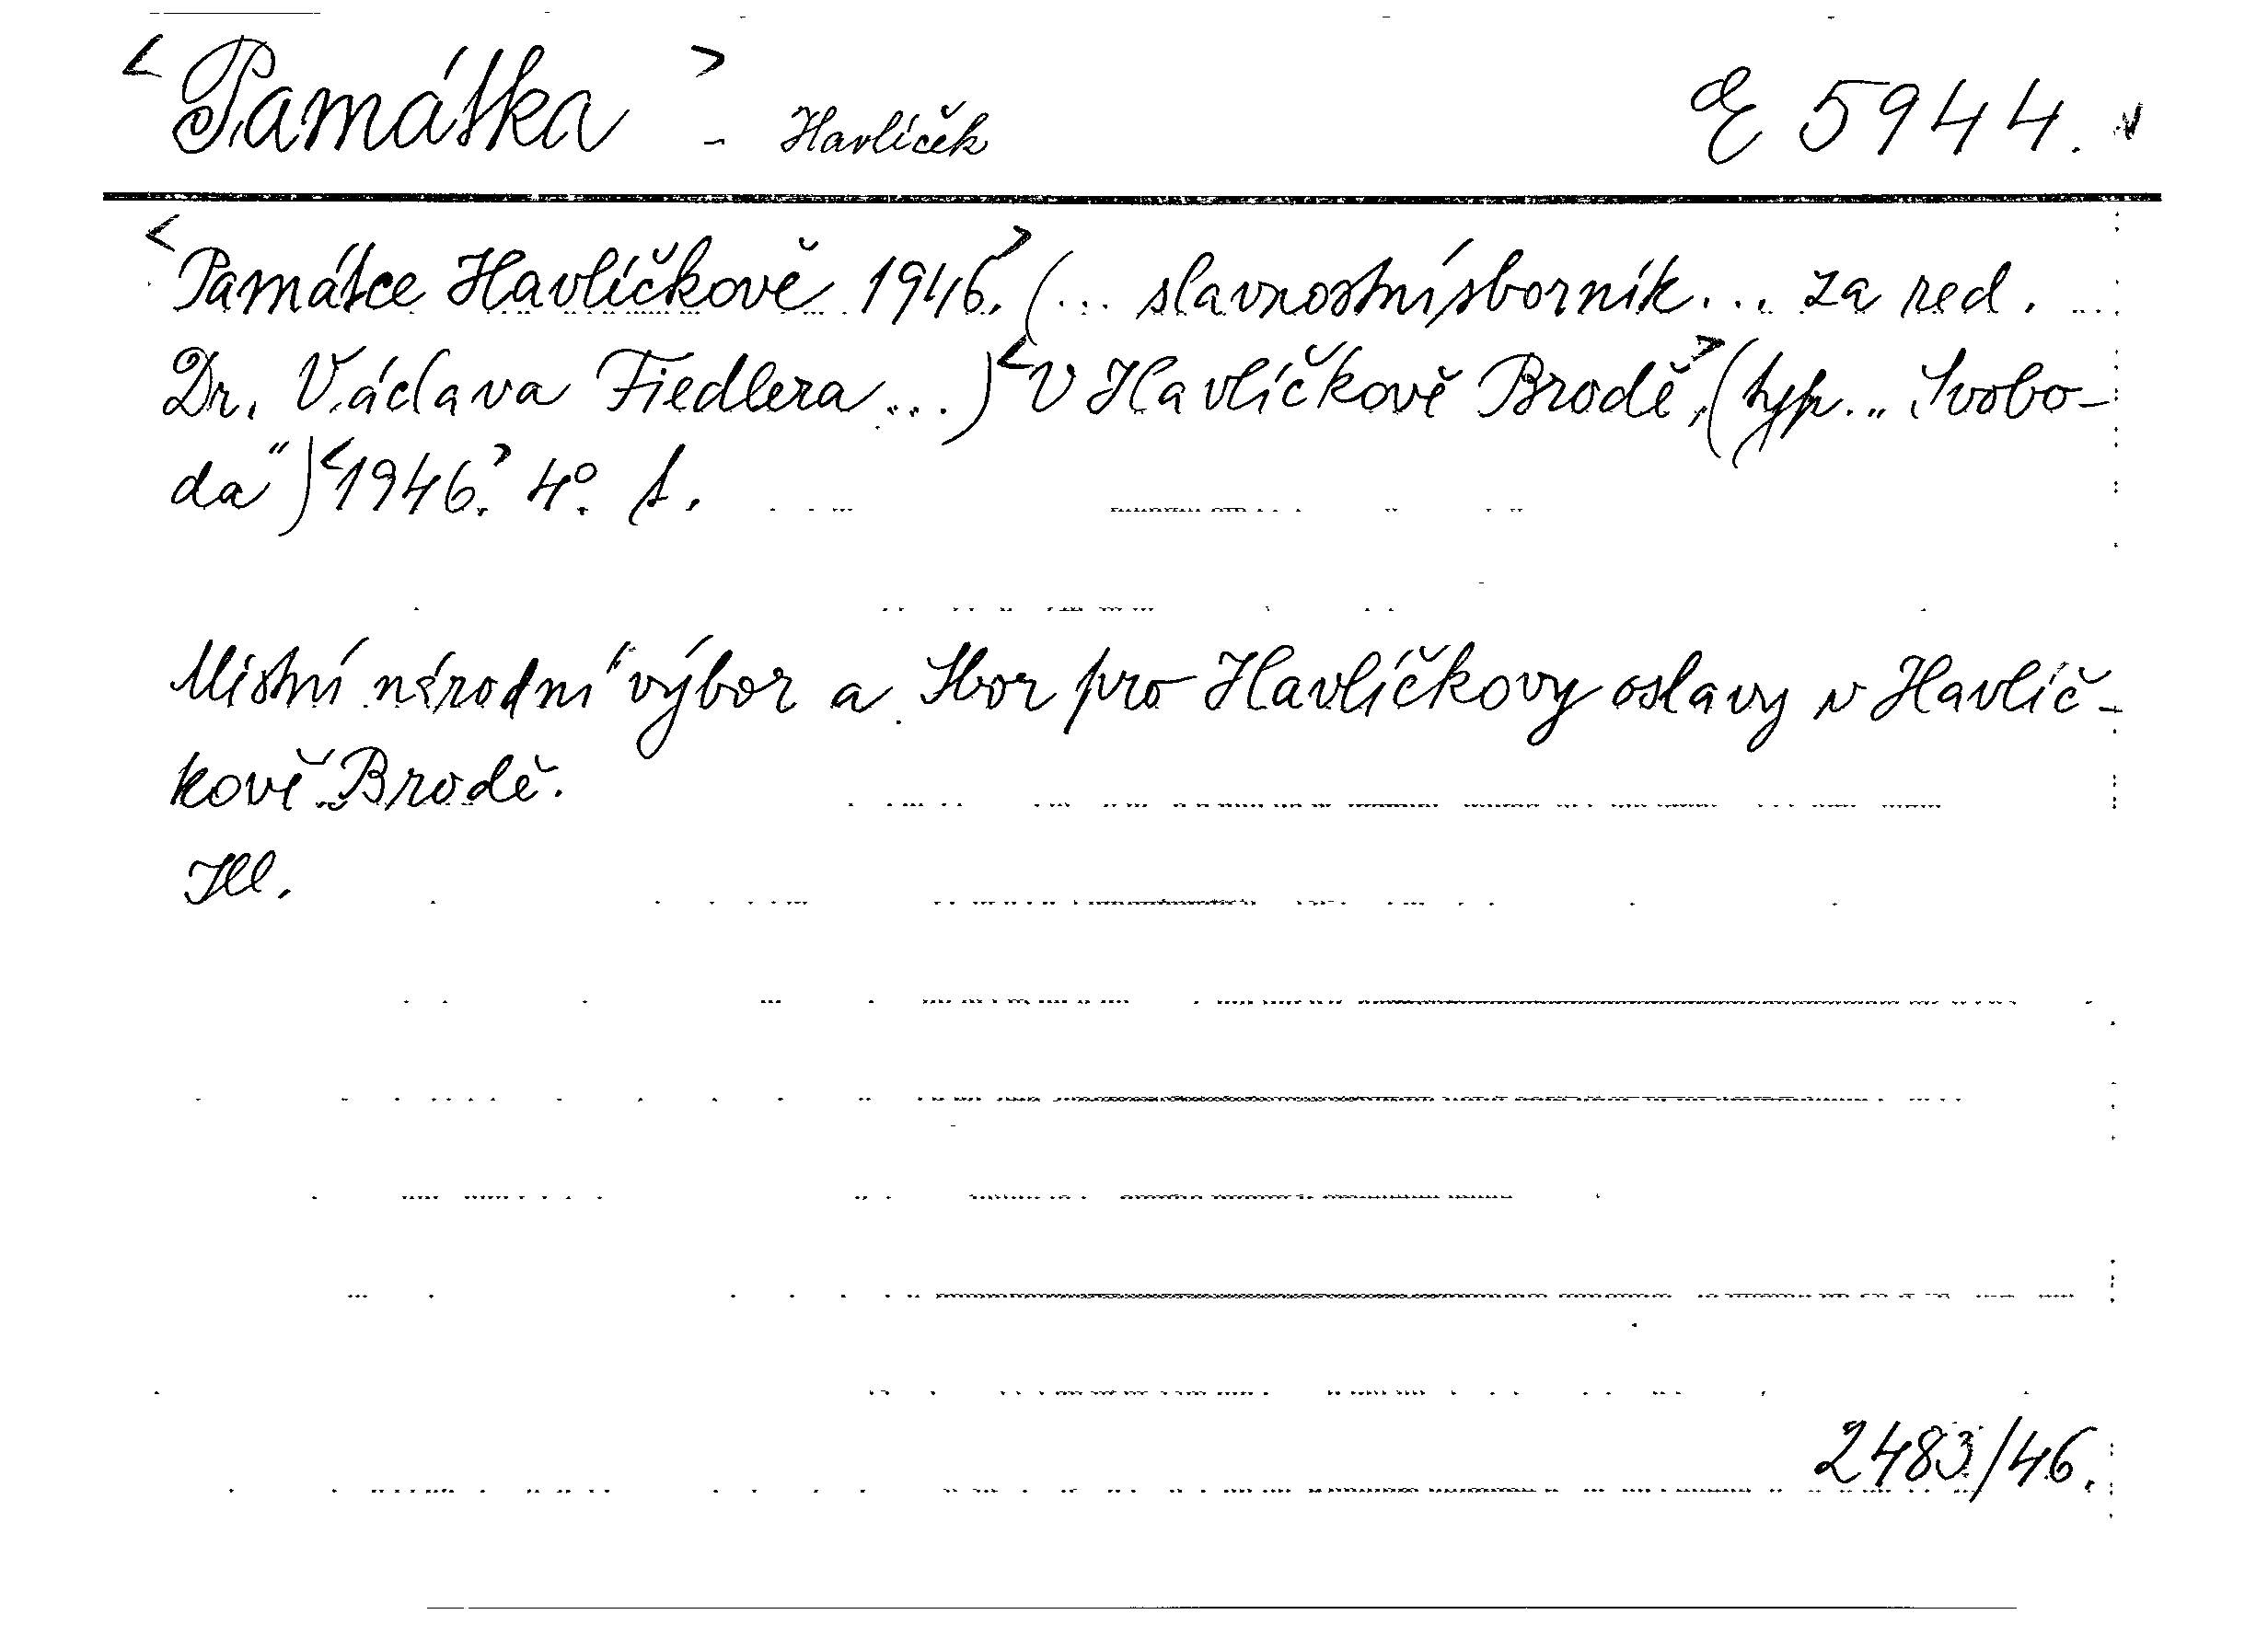 <Památka> - Havlíček E 5944.
<Památce Havlíčkově 1946.> (... slavnostní sborník... za red.
Dr. Václava Fiedlera...) <V Havlíčkově Brodě,> (typ. „Svobo-
da“) <1946.> 4°. 1.
Místní národní výbor a Sbor pro Havlíčkovy oslavy v Havlíč-
kově Brodě.
Ill.
2483/46.